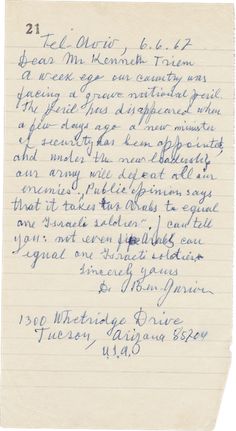 21
Tel-Aviv, 6.6.67
Dear Mr. Kenneth Triem
A week ago our country was
facing a grave national peril.
The peril has disappeared when
a few days ago a new minister
of security has been appointed,
and under the new leadership
our army will defeat all our
enemies. Public opinion says
that it takes two Arabs to equal
one Israeli soldier. I can tell
you: not even Arabs can
equal one Israeli soldier.
Sincerely yours
D. Ben-Gurion
1300 Whetridge Drive
Tucson, Arizona 85704
U.S.A.